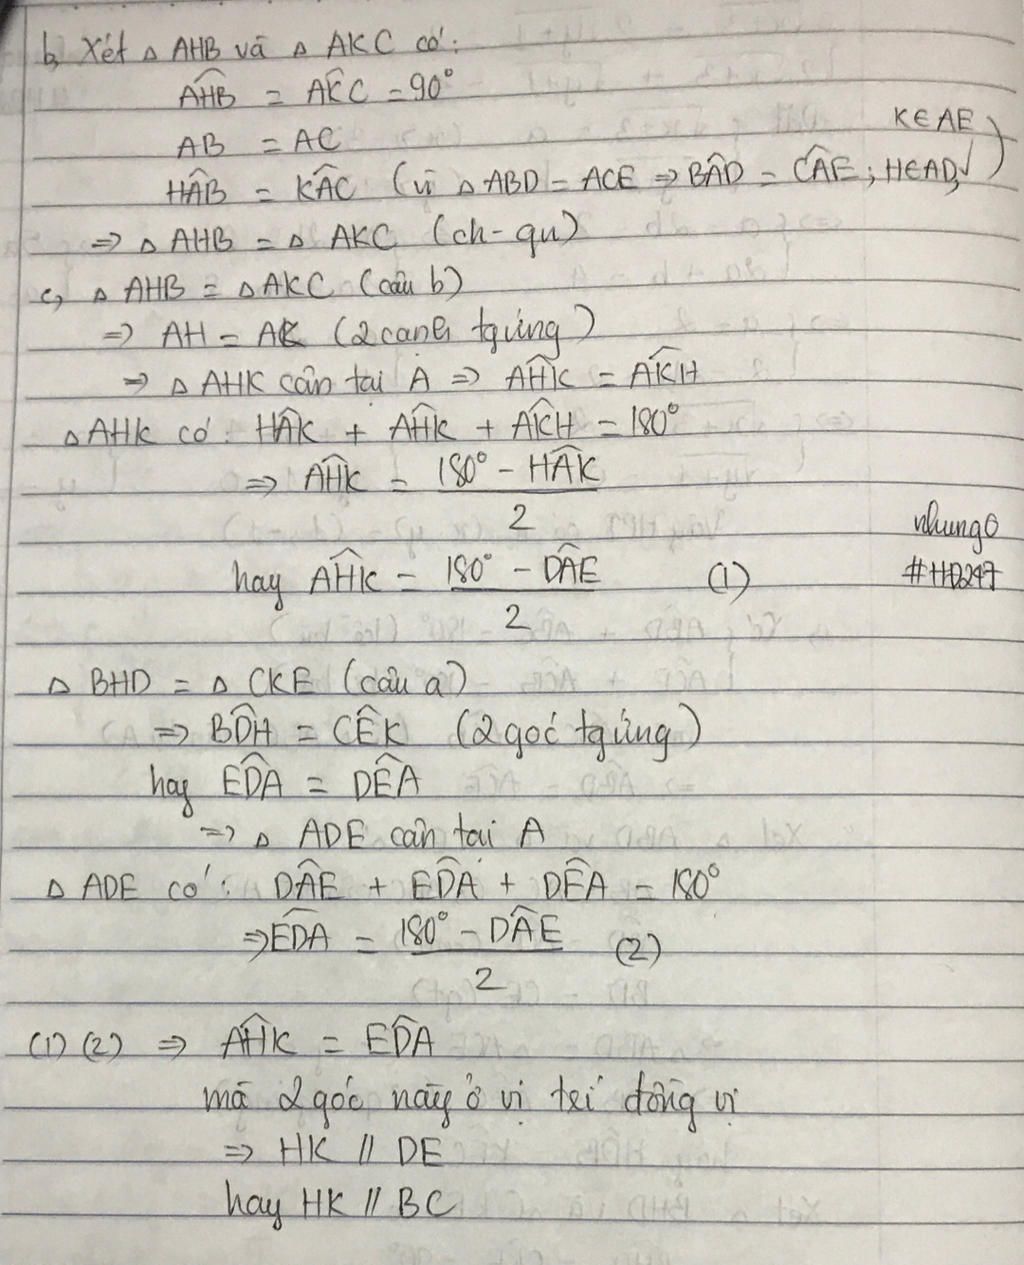 b, Xét △ AHB và △ AKC có:
A͡HB = A͡KC = 90°
AB = AC
K∈AE
HÂB = KÂC (vì △ ABD = ACE ⇒ BÂD = CÂE; H∈AD, )
⇒ △ AHB = △ AKC (ch-gn)
c, △ AHB = △ AKC (câu b)
⇒ AH = AK (2 cạnh tg ứng)
⇒ △ AHK cân tại A ⇒ A͡HK = A͡KH
△ AHK có: HÂK + A͡HK + A͡KH = 180°
⇒ A͡HK = (180° - HÂK)/2
nhung0
hay A͡HK = (180° - DÂE)/2 (1)
#HD247
△ BHD = △ CKE (câu a)
⇒ BD͡H = CÊK (2 góc tg ứng)
hay ED͡A = DÊA
⇒ △ ADE cân tại A
△ ADE có: DÂE + ED͡A + DÊA = 180°
⇒ ED͡A = (180° - DÂE)/2 (2)
(1) (2) ⇒ A͡HK = ED͡A
mà 2 góc này ở vị trí đồng vị
⇒ HK // DE
hay HK // BC